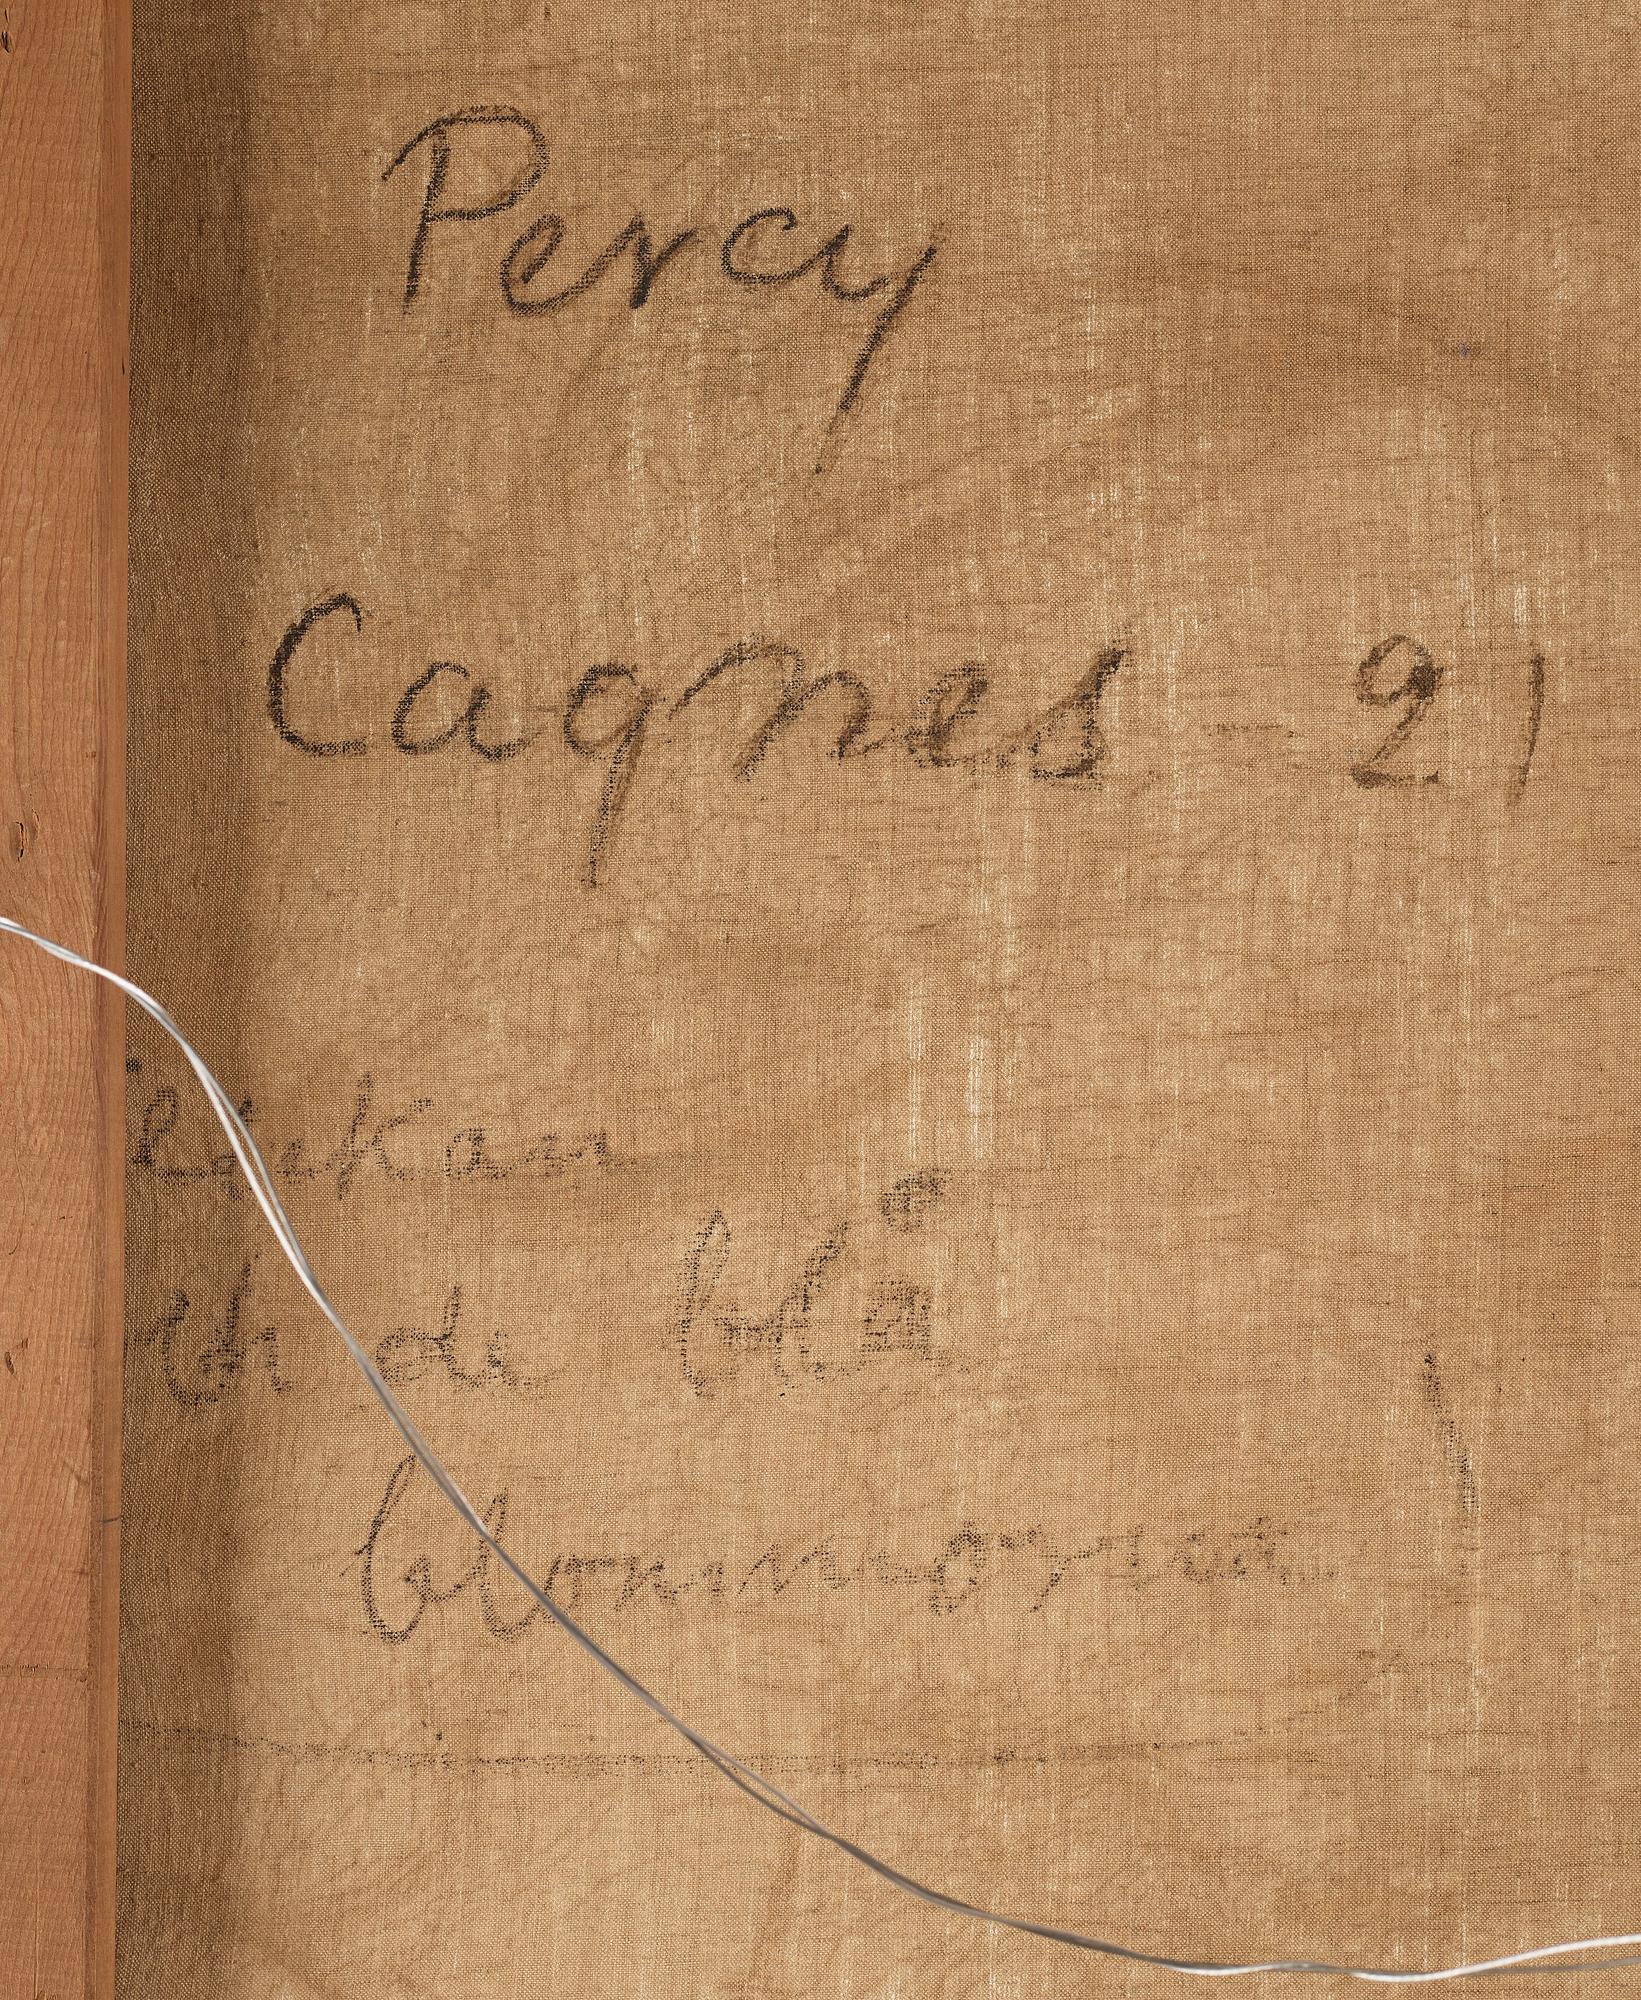 Percy
Cagnes - 21
de blå
blommorna